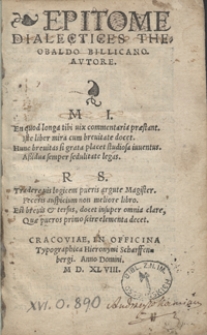 EPITOME
DIALECTICES THE-
OBALDO BILLICANO.
AVTORE.
M I.
En quod longa tibi uix commentaria præstant.
Iste liber mira cum breuitate docet.
Hunc breuitas si grata placet studiosa iuuentus.
Assidua semper sedulitate legat.
R S.
Tradere uis logicem pueris argute Magister.
Precor officium non meliore libro.
Est breuis & tersus, docet insuper omnia clare,
Quæ pueros primo scire elementa decet.
CRACOVIAE, EX OFFICINA
Typographica Hieronymi Scharffen-
bergi. Anno Domini.
M. D. XLVIII.
XVI. O. 890